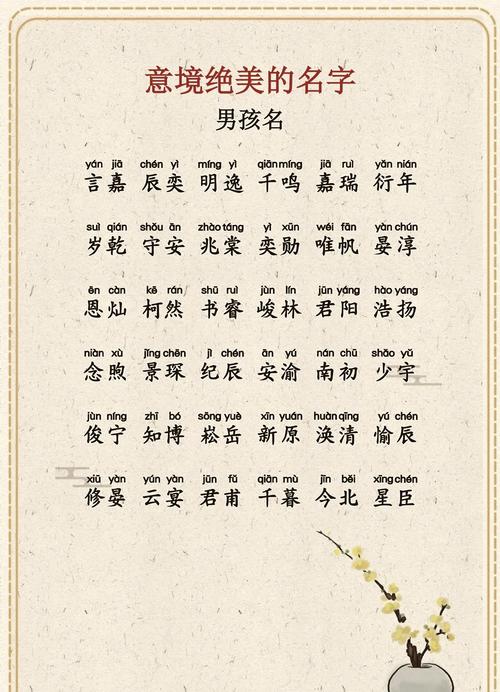 意境绝美的名字
男孩名
yán jiā chén yì míng yì qiān míng jiā ruì yǎn nián
言嘉 辰奕 明逸 千鸣 嘉瑞 衍年
suì qián shǒu ān zhào táng yì xūn wéi fān yàn chún
岁乾 守安 兆棠 奕勋 唯帆 晏淳
ēn càn kē rán shū ruì jùn lín jūn yáng hào yáng
恩灿 柯然 书睿 峻林 君阳 浩扬
niàn xù jǐng chēn jì chén ān yú nán chū shǎo yǔ
念煦 景琛 纪辰 安渝 南初 少宇
jùn níng zhī bó sōng yuè xīn yuán huàn qīng yú chén
俊宁 知博 崧岳 新原 涣清 愉辰
xiū yàn yún yàn jūn fǔ qiān mù jīn běi xīng chén
修晏 云宴 君甫 千暮 今北 星臣